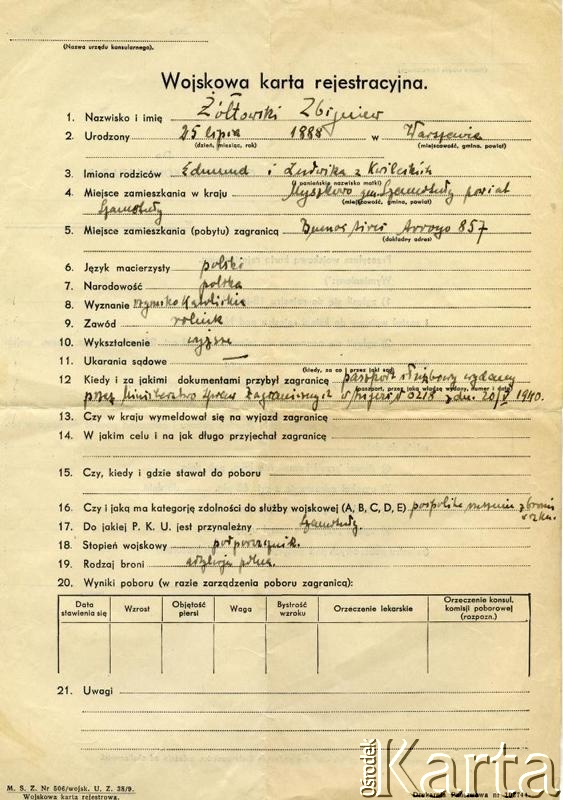 (Nazwa urzędu konsularnego).
Wojskowa karta rejestracyjna.
1. Nazwisko i imię Żółtowski Zbigniew
2. Urodzony 25 lipca 1888 w Warszawie
(dzień, miesiąc, rok) (miejscowość, gmina, powiat)
3. Imiona rodziców Edmund i Ludwika z Kwileckich
(panieńskie nazwisko matki)
4. Miejsce zamieszkania w kraju Myszkowo gm. Szamotuły powiat
(miejscowość, gmina, powiat)
Szamotuły
5. Miejsce zamieszkania (pobytu) zagranicą Buenos Aires Arroyo 857
(dokładny adres)
6. Język macierzysty polski
7. Narodowość polska
8. Wyznanie rzymsko katolickie
9. Zawód rolnik
10. Wykształcenie wyższe
11. Ukarania sądowe —
(kiedy, za co i przez jaki sąd)
12 Kiedy i za jakimi dokumentami przybył zagranicę paszport służbowy wydany
(paszport, przez jaką władzę wydany, numer i data)
przez Ministerstwo Spraw Zagranicznych w Angers N 0218 z dn. 20/V 1940.
13. Czy w kraju wymeldował się na wyjazd zagranicę
14. W jakim celu i na jak długo przyjechał zagranicę
15. Czy, kiedy i gdzie stawał do poboru
16. Czy i jaką ma kategorię zdolności do służby wojskowej (A, B, C, D, E) pospolite ruszenie z bronią
17. Do jakiej P. K. U. jest przynależny Szamotuły.
18. Stopień wojskowy podporucznik.
19. Rodzaj broni artyleria polna.
20. Wyniki poboru (w razie zarządzenia poboru zagranicą):
Data stawienia się Wzrost Objętość piersi Waga Bystrość wzroku Orzeczenie lekarskie Orzeczenie konsul. komisji poborowej (rozpozn.)
21. Uwagi
M. S. Z. Nr 506/wojsk. U. Z. 38/9.
Wojskowa karta rejestrowa.
Drukarnia Państwowa nr
Ośrodek Karta